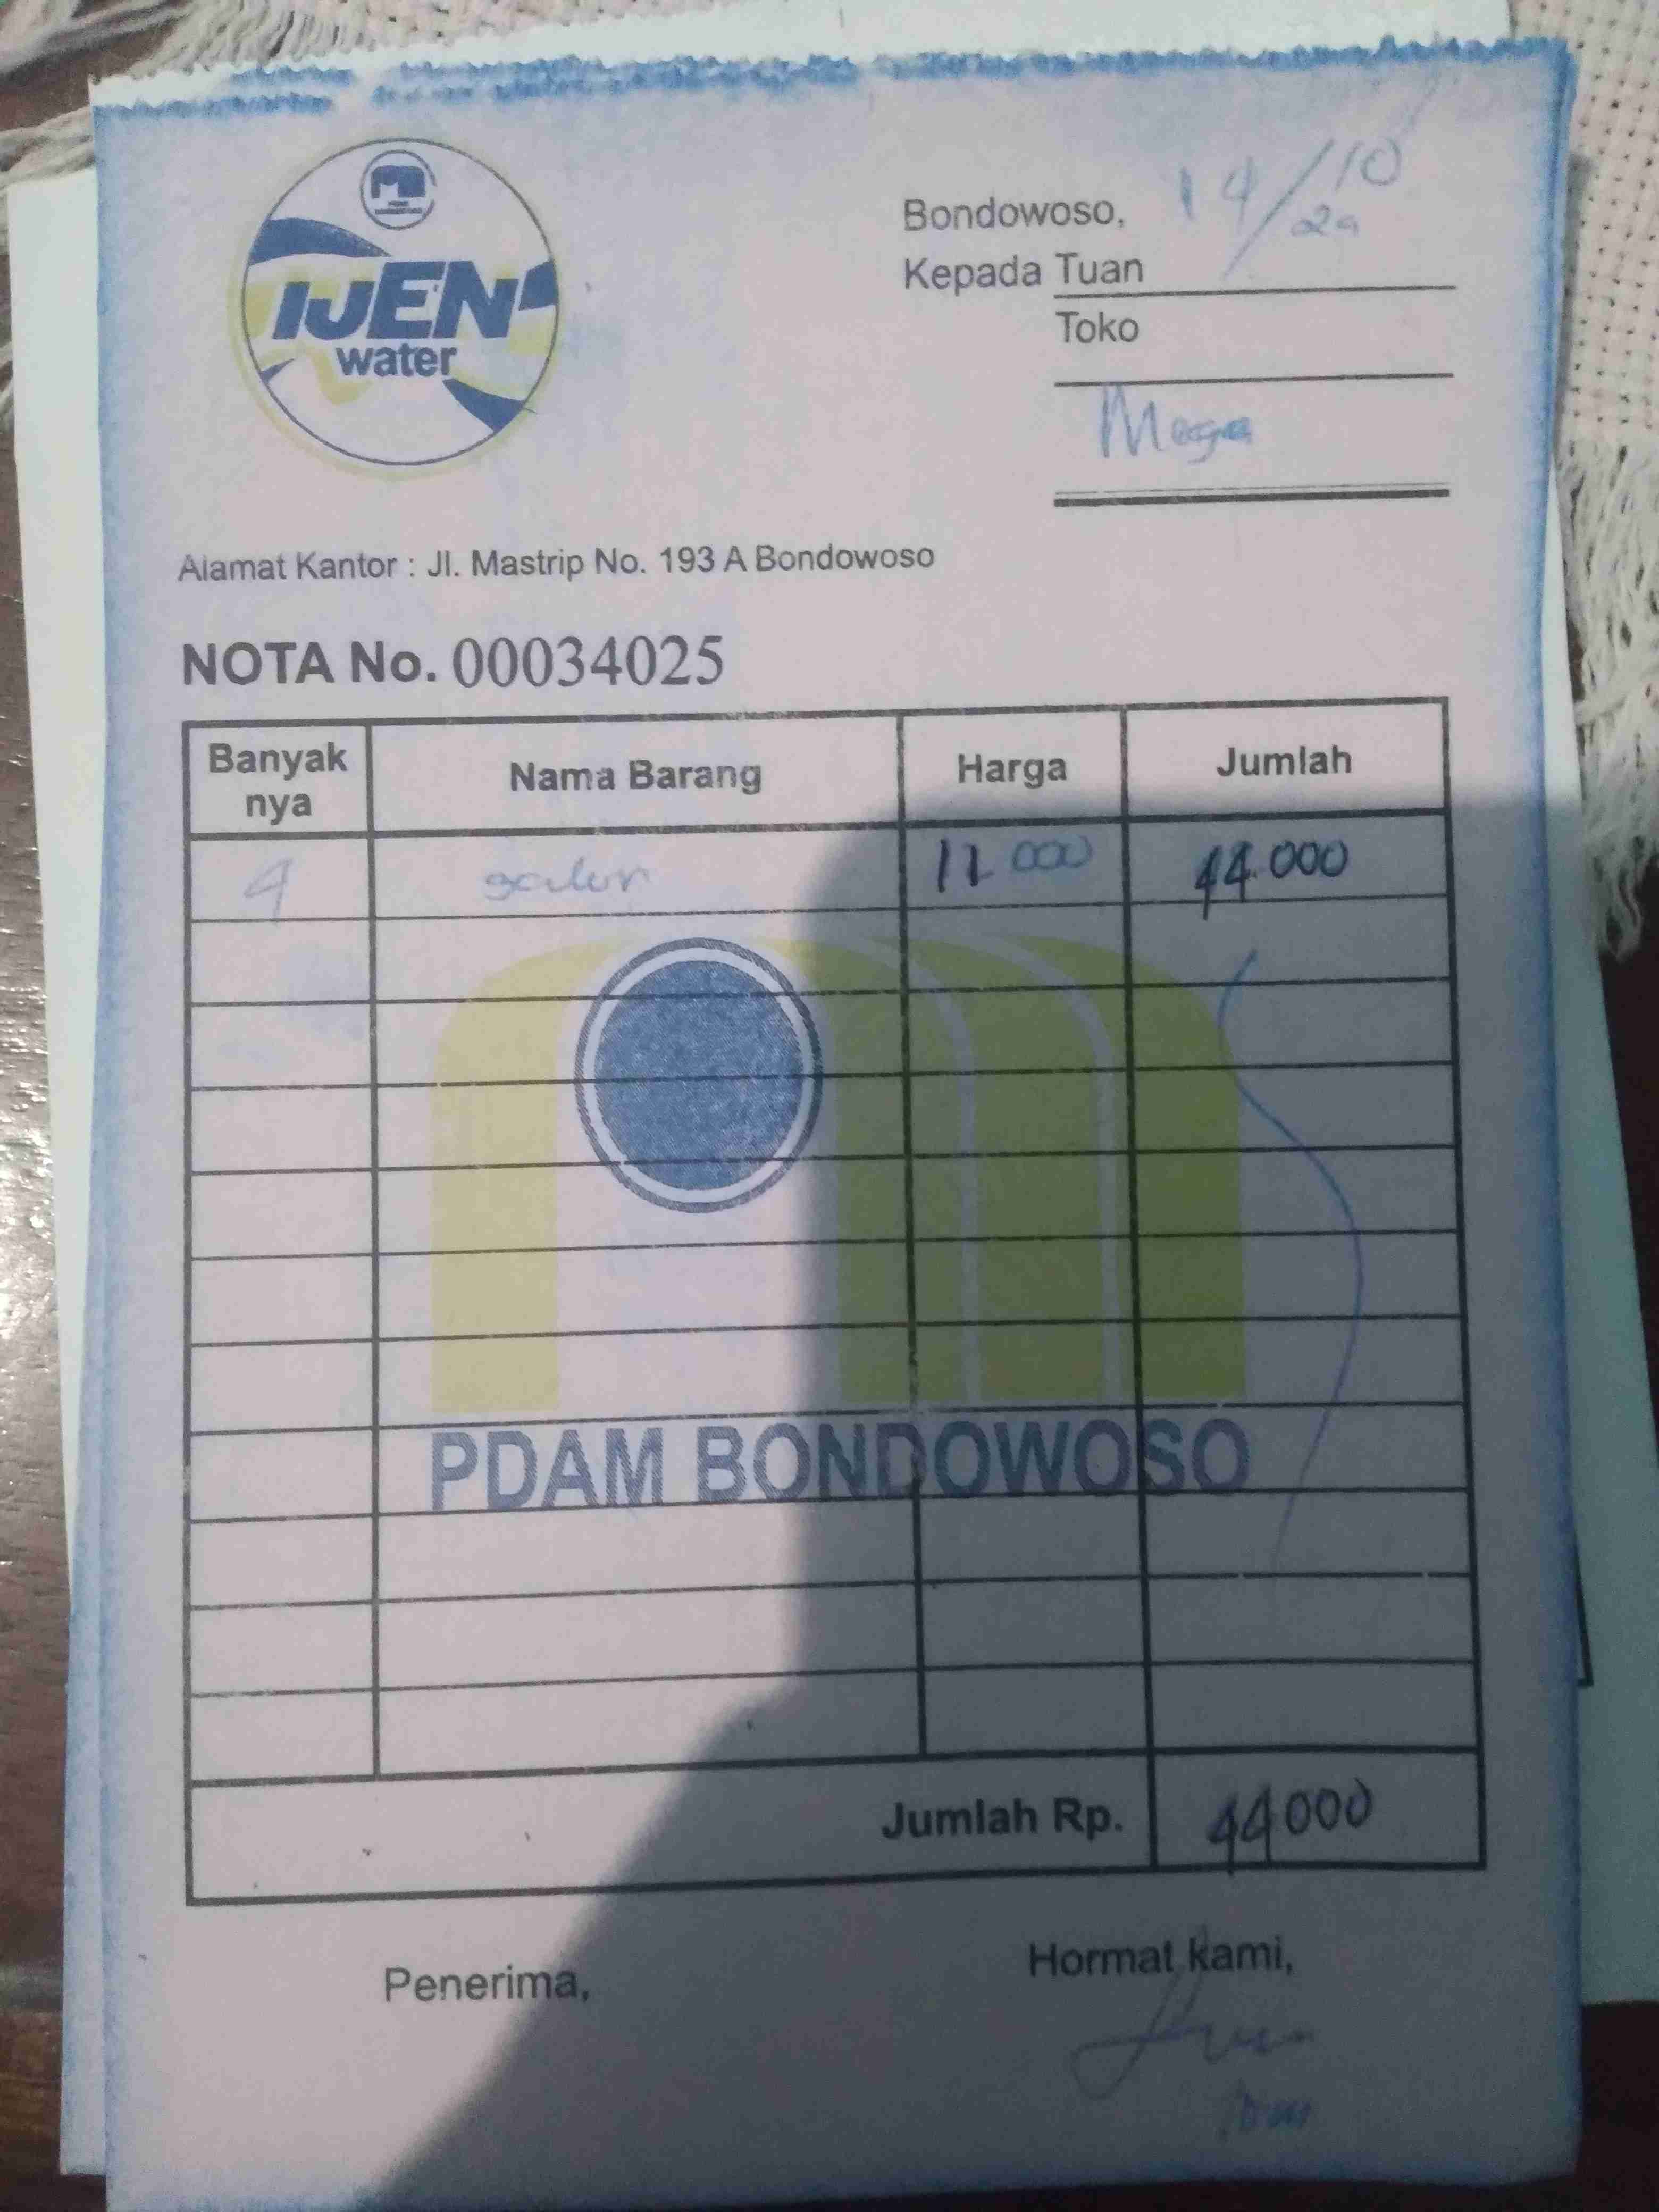 IJEN
water
Bondowoso, 14/10
Kepada Tuan
Toko
Mega
Alamat Kantor : Jl. Mastrip No. 193 A Bondowoso
NOTA No. 00034025
Banyak nya Nama Barang Harga Jumlah
4 galon 11 000 44.000
PDAM BONDOWOSO
Jumlah Rp. 44000
Penerima, Hormat kami,